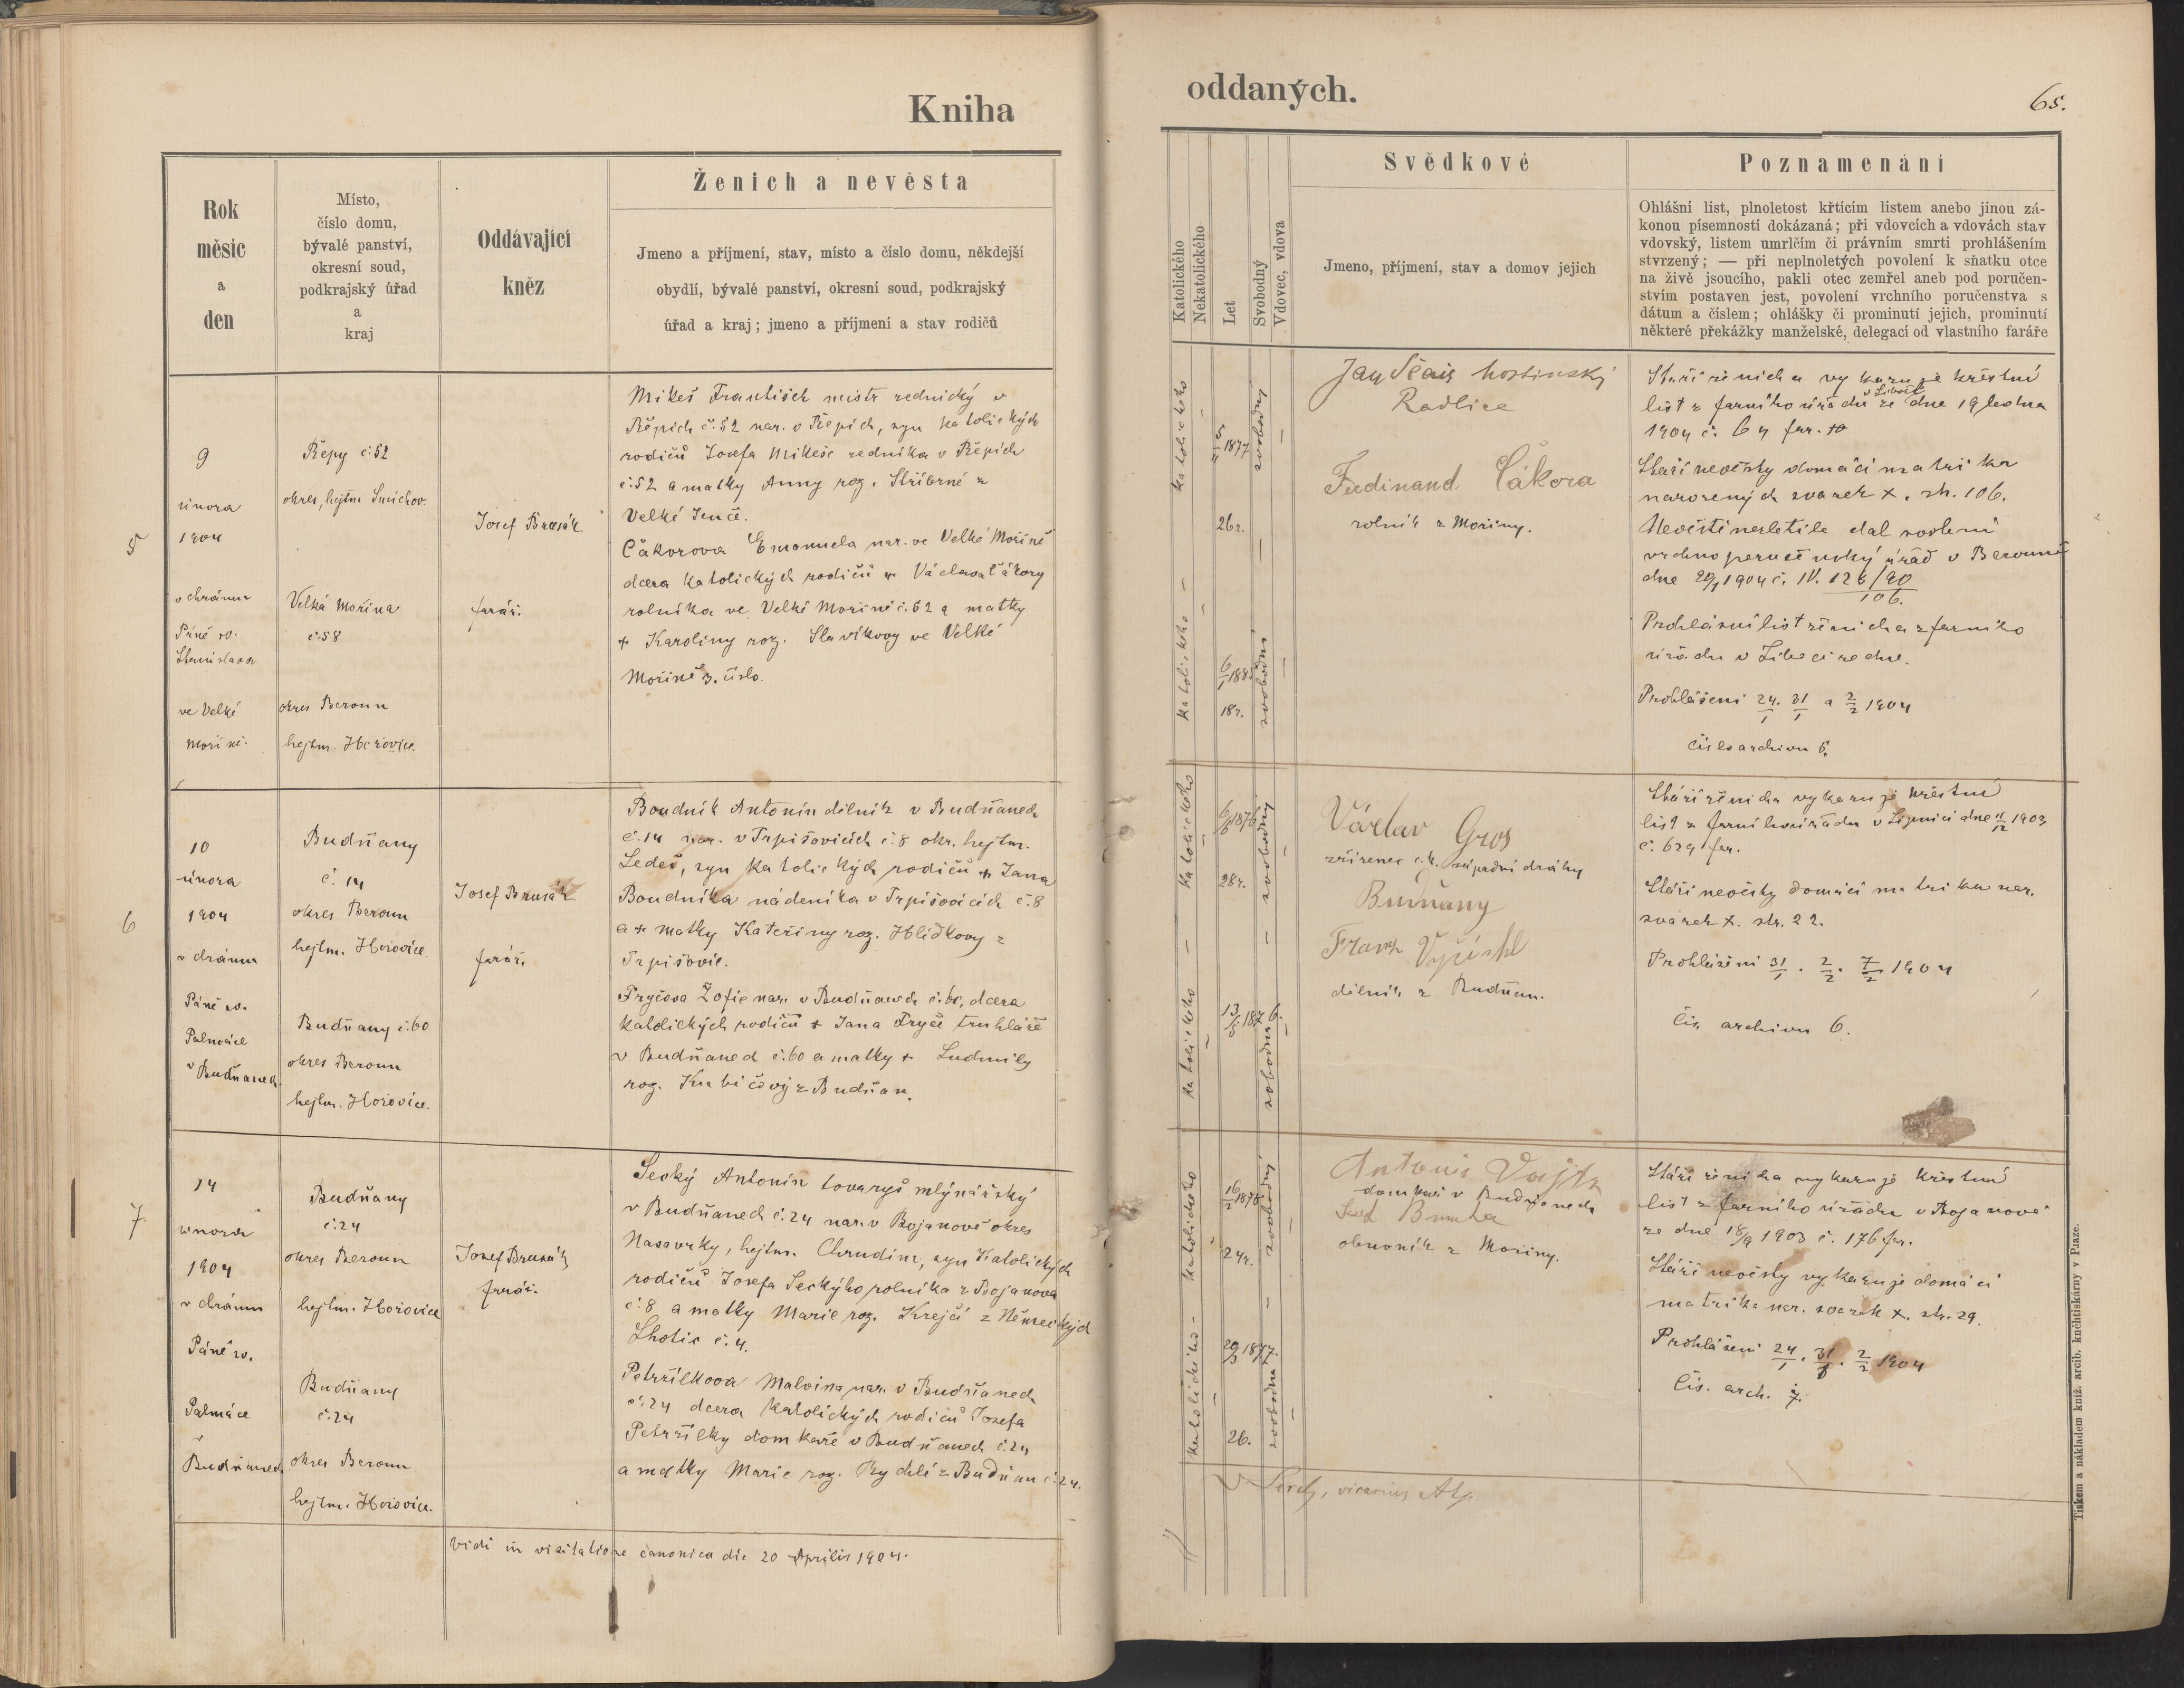 Kniha
oddaných.
65.
Rok
měsíc
a
den
Místo,
číslo domu,
bývalé panství,
okresní soud,
podkrajský úřad
a
kraj
Oddávající
kněz
Ženich a nevěsta
Jmeno a příjmení, stav, místo a číslo domu, někdejší
obydlí, bývalé panství, okresní soud, podkrajský
úřad a kraj; jmeno a příjmení a stav rodičů
Katolického
Nekatolického
Let
Svobodný
Vdovec, vdova
Svědkové
Jmeno, příjmení, stav a domov jejich
Poznamenání
Ohlášní list, plnoletost křtícím listem anebo jinou zá-
konou písemností dokázaná; při vdovcích a vdovách stav
vdovský, listem umrlčím či právním smrti prohlášením
stvrzený; — při neplnoletých povolení k sňatku otce
na živě jsoucího, pakli otec zemřel aneb pod poručen-
stvím postaven jest, povolení vrchního poručenstva s
dátum a číslem; ohlášky či prominutí jejich, prominutí
některé překážky manželské, delegací od vlastního faráře
5
9
února
1904
v chrámu
Páně sv.
Stanislava
ve Velké
Mořině.
Řepy č. 52
okres, hejtm Smíchov.
Velká Mořina
č. 58
okres Beroun
hejtm. Hořovice.
Josef Brusák
farář.
Mikeš František mistr řednický v
Řepích č. 52 nar. v Řepích, syn katolických
rodičů Josefa Mikeše řezníka v Řepích
č. 52 a matky Anny roz. Stříbrné z
Velké Jenče.
Čákorova Emanuela nar. ve Velké Mořině
dcera katolických rodičů + Václava Čákory
rolníka ve Velké Mořině č. 52 a matky
+ Karoliny roz. Slavíkovy ve Velké
Mořině 3. číslo.
katolického – katolického
5/11 1877
26 r.
6/1 1885
18 r.
svobodný – svobodná
Jan hostinský
Radlice
Ferdinand Čákora
rolník z Mořiny.
Stáří ženicha vykazuje křestní
list z farního úřadu v Liboci ze dne 19 ledna
1904 č. 64 far.
Stáří nevěsty domácí matrika
narozených svazek X. str. 106.
Nevěstě nezletilé dal svolení
vrchnoporučenský úřad v Berouně
dne 20/1 1904 č. IV. 126/90
106.
Prohlášní list ženicha z farního
úřadu v Liboci ze dne.
Prohlášení 24/1. 31/1 a 2/2 1904
Číslo archivu 5.
6
10
února
1904
v chrámu
Páně sv.
Palmacie
v Budňanech
Budňany
č. 14
okres Beroun
hejtm. Hořovice
Budňany č. 60
okres Beroun
hejtm. Hořovice.
Josef Brusák
farář.
Boudník Antonín dělník v Budňanech
č. 14 nar. v Trpišovicích č. 8 okr. hejtm.
Ledeč, syn katolických rodičů + Jana
Boudníka nádeníka v Trpišovicích č. 8
a + matky Kateřiny roz. Hlídkovy z
Trpišovic.
Fryčova Žofie nar. v Budňanech č. 60, dcera
katolických rodičů + Jana Fryče truhláře
v Budňanech č. 60 a matky + Ludmily
roz. Kubičovy z Budňan.
katolického – katolického
6/6 1876
28 r.
13/5 1876.
svobodný – svobodna
Václav Gros
zřízenec c.k. západní dráhy
Budňany
Frant Vyčichl
dělník z Budňan.
Stáří ženicha vykazuje křestní
list z farního úřadu v Lipnici dne 11/12 1903
č. 629 far.
Stáří nevěsty domácí matrika nar.
svazek X. str. 22.
Prohlášení 31/1. 2/2. 7/2 1904
Čís. archivu 6.
7
14
února
1904
v chrámu
Páně sv.
Palmácie
v
Budňanech
Budňany
č. 24
okres Beroun
hejtm. Hořovice
Budňany
č. 24
okres Beroun
hejtm. Hořovice.
Josef Brusák
farář.
Secký Antonín tovaryš mlýnářský
v Budňanech č. 24 nar. v Bojanově okres
Nasavrky, hejtm. Chrudim, syn katolických
rodičů Josefa Seckýho rolníka z Bojanova
č. 8 a matky Marie roz. Krejčí z Německých
Lhotic č. 4.
Petržílkova Malvina nar. v Budňanech
č. 24 dcera katolických rodičů Josefa
Petržílky domkaře v Budňanech č. 24
a matky Marie roz. Rychlé z Budňan č. 24.
katolického – katolického
16/2 1878
24 r.
20/3 1877.
26.
svobodný – svobodna
Antonin Vojta
domkař v Budňanech
obuvník z Mořiny.
Stáří ženicha vykazuje křestní
list z farního úřadu v Bojanově
ze dne 18/9 1903 č. 176 far.
Stáří nevěsty vykazuje domácí
matrika nar. svazek X. str. 29.
Prohlášení 24/1. 31/1. 2/2 1904
Čís. arch. 7.
Vidi in visitatione canonica die 20 Aprilis 1904.
vicarius
Tiskem a nákladem kníž. arcib. knihtiskárny v Praze.